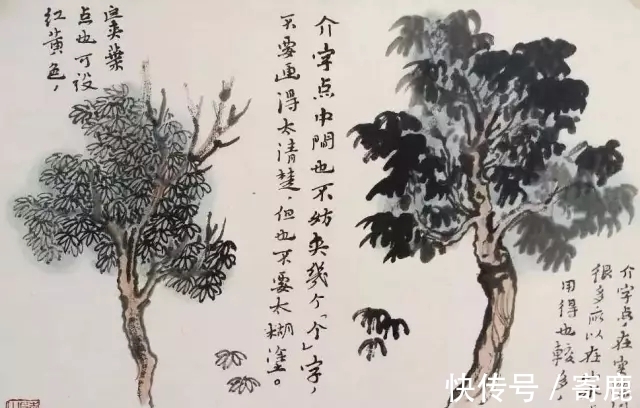 介字点，在
很多所以在山
用得也較多，
介字点中間也不妨夹幾个「个」字，
不要画得太清楚，但也不要太糊塗。
夹葉
点也可设
红黄色，
快传号／寄鹿